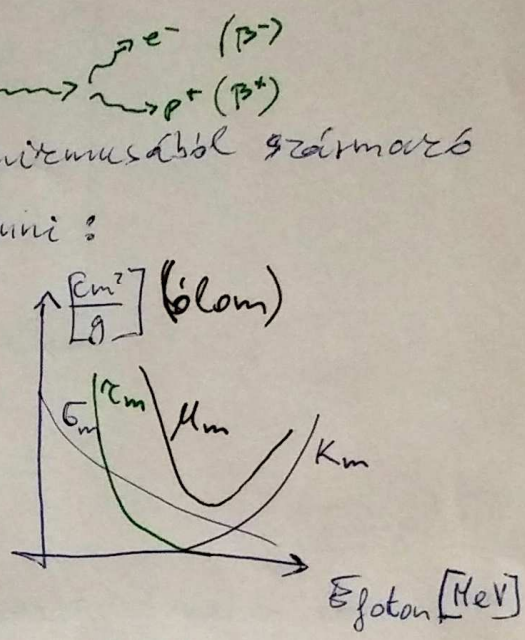 e⁻ (β⁻)
p⁺ (β⁺)
nizmusából származó
unni :
[cm²/g] (ólom)
σm τm μm Km
Efoton [MeV]